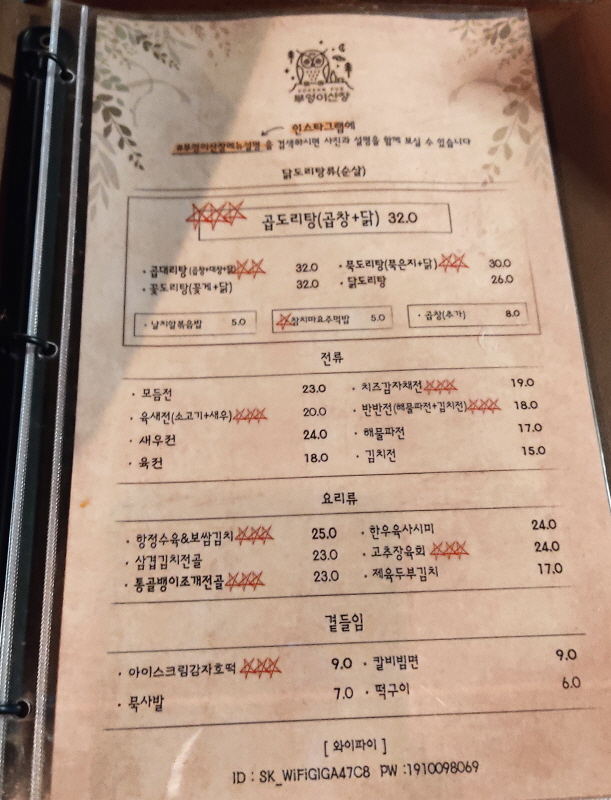 KOREAN PUB
부엉이산장
인스타그램에
#부엉이산장메뉴설명 을 검색하시면 사진과 설명을 함께 보실 수 있습니다
닭도리탕류(순살)
곱도리탕(곱창+닭) 32.0
· 곱대리탕(곱창+대창+닭) 32.0 · 묵도리탕(묵은지+닭) 30.0
· 꽃도리탕(꽃게+닭) 32.0 · 닭도리탕 26.0
· 날치알볶음밥 5.0 · 참치마요주먹밥 5.0 · 곱창(추가) 8.0
전류
· 모듬전 23.0 · 치즈감자채전 19.0
· 육새전(소고기+새우) 20.0 · 반반전(해물파전+김치전) 18.0
· 새우전 24.0 · 해물파전 17.0
· 육전 18.0 · 김치전 15.0
요리류
· 항정수육&보쌈김치 25.0 · 한우육사시미 24.0
· 삼겹김치전골 23.0 · 고추장육회 24.0
· 통골뱅이조개전골 23.0 · 제육두부김치 17.0
곁들임
· 아이스크림감자호떡 9.0 · 갈비빔면 9.0
· 묵사발 7.0 · 떡구이 6.0
[ 와이파이 ]
ID : SK_WiFiGIGA47C8 PW :1910098069